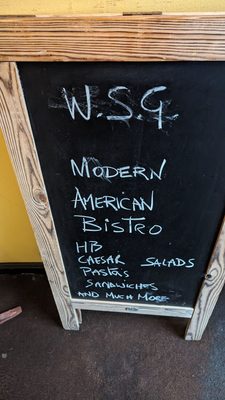 W.S.G
MODERN
AMERICAN
BISTRO
HB
CAESAR SALADS
PASTAS
SANDWICHES
AND MUCH MORE